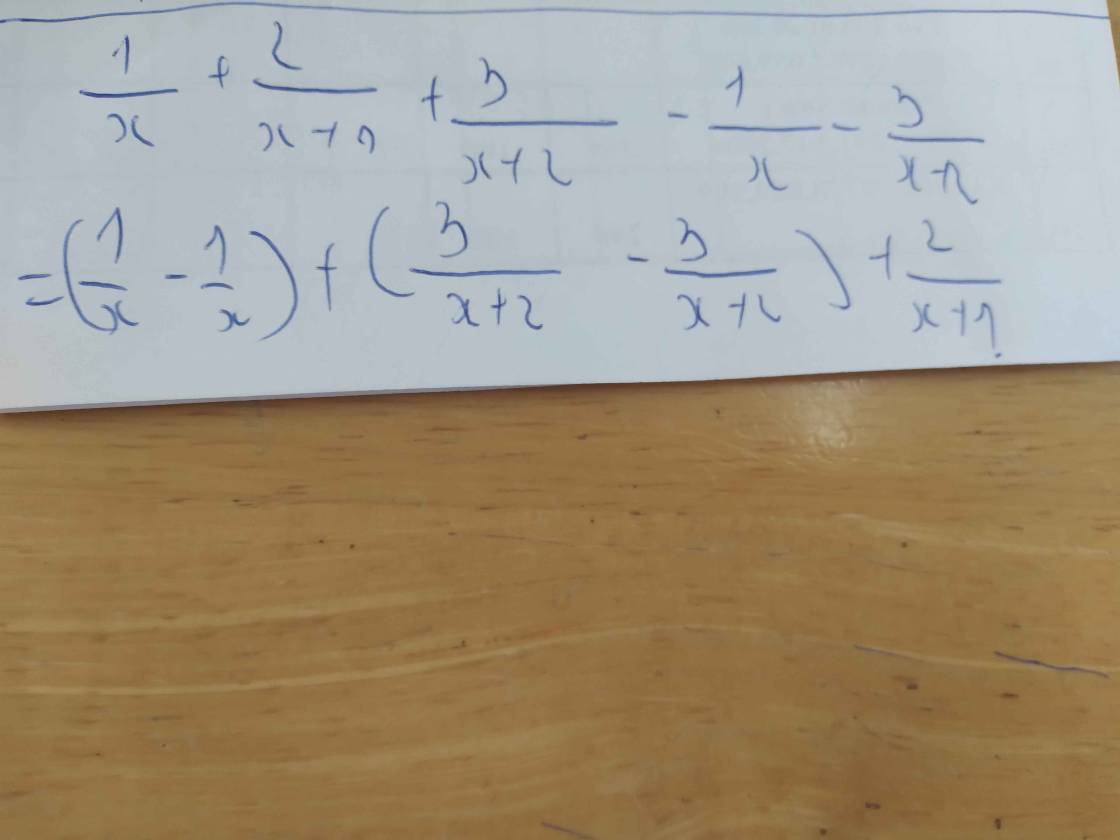 1/x + 2/(x+1) + 3/(x+2) - 1/x - 3/(x+2)
= (1/x - 1/x) + (3/(x+2) - 3/(x+2)) + 2/(x+1).